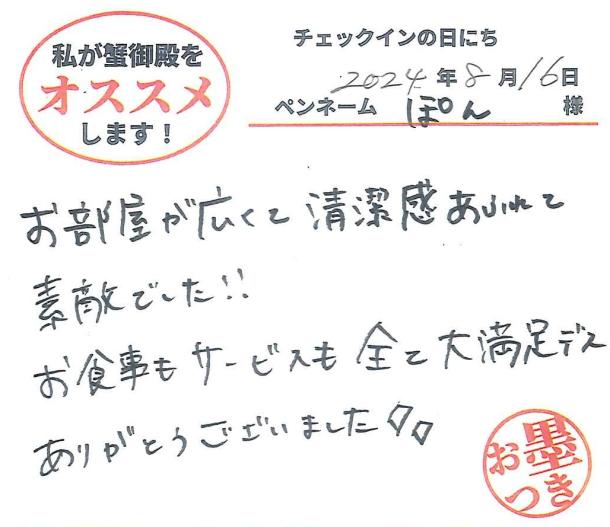 私が蟹御殿を
オススメ
します！
チェックインの日にち
2024年8月16日
ペンネーム ぽん 様
お部屋が広くて清潔感あふれて
素敵でした!!
お食事もサービスも全て大満足デス
ありがとうございました
お墨
つき